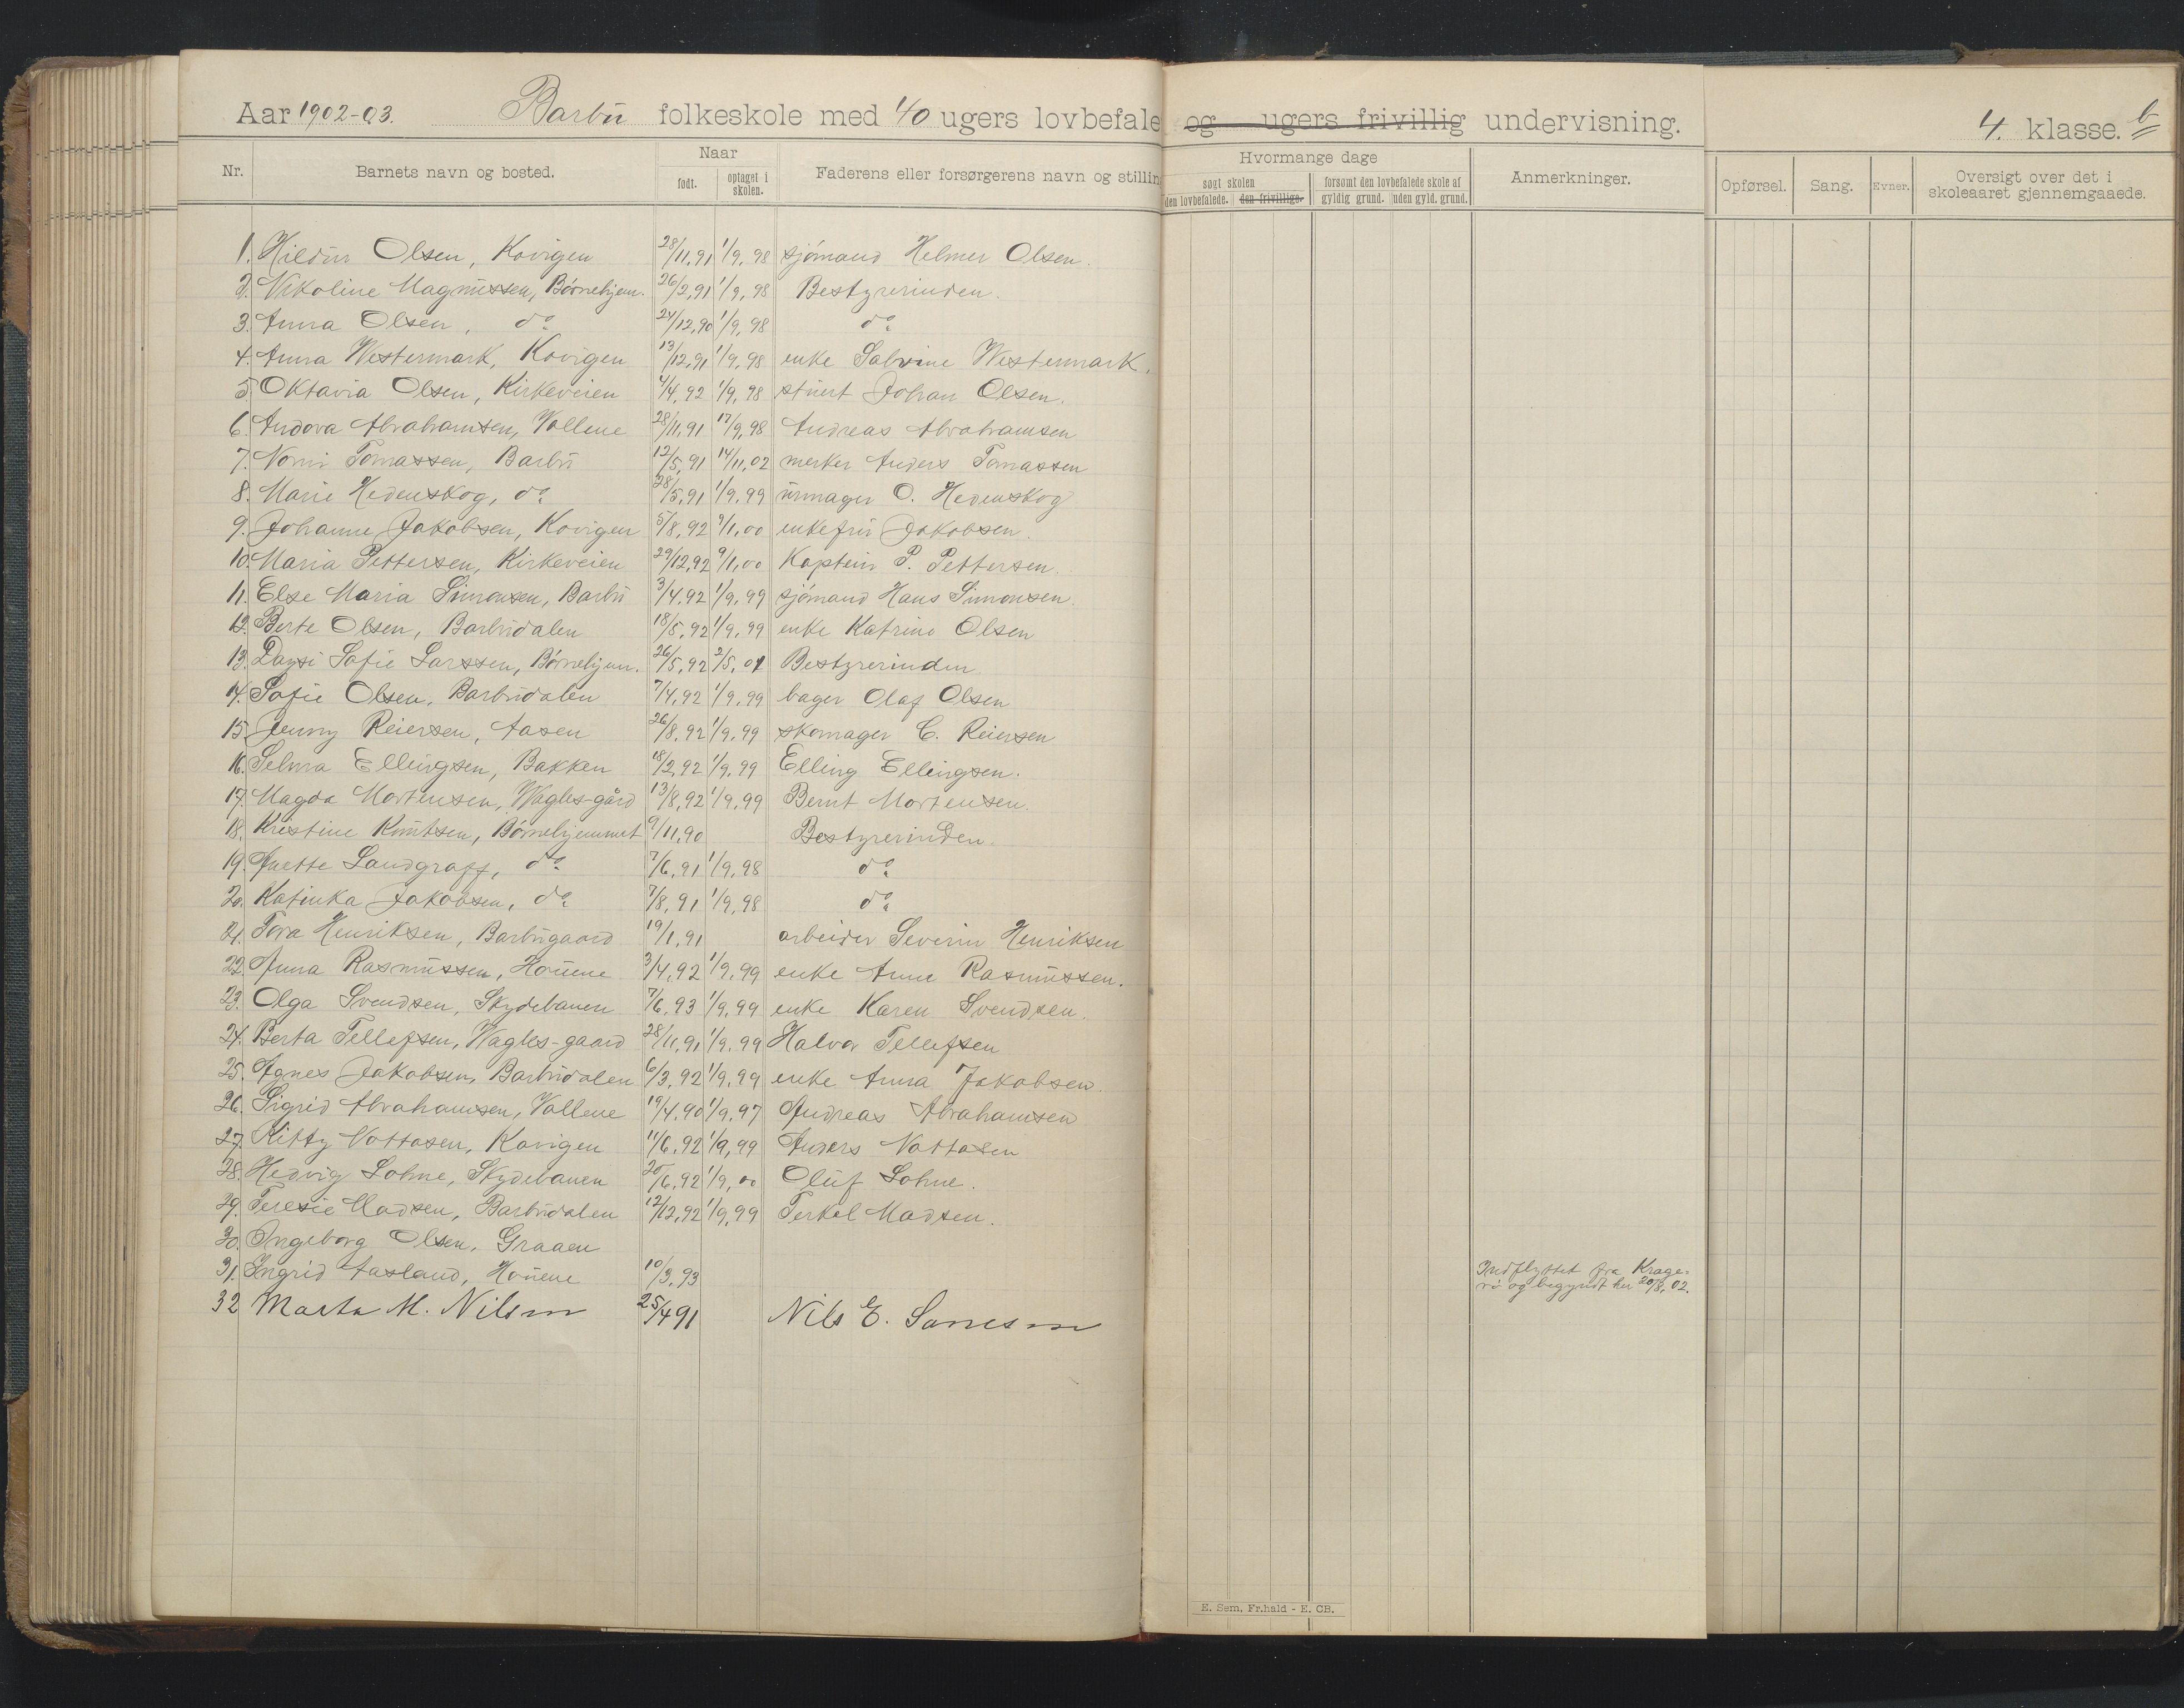 Aar 1902-03. Barbu folkeskole med 40 ugers lovbefale og ugers frivillig undervisning. 4. klasse. b
Nr. Barnets navn og bosted. Naar Faderens eller forsørgerens navn og stilling Hvormange dage Anmerkninger. Opførsel. Sang. Evner. Oversigt over det i skoleaaret gjennemgaaede.
født. optaget i skolen. søgt skolen forsømt den lovbefalede skole af
den lovbefalede. den frivillige. gyldig grund. uden gyld. grund.
1. Hildur Olsen, Kovigen 28/11,91 1/9,98 sjömand Helmer Olsen.
2. Nikoline Magnussen, Börnehjem. 26/2,91 1/9,98 Bestyrerinden.
3. Anna Olsen, do 24/12,90 1/9,98 do
4. Anna Westermark, Kovigen 13/12,91 1/9,98 enke Sabrine Westermark.
5. Oktavia Olsen, Kirkeveien 4/4,92 1/9,98 stuert Johan Olsen.
6. Andora Abrahamsen, Vollene 28/11,91 17/9,98 Andreas Abrahamsen
7. Nomi Tomassen, Barbu 12/5,91 14/11,02 merker Anders Tomassen
8. Marie Hedenskog, do 28/5,91 1/9,99 urmager O. Hedenskog
9. Johanne Jakobsen, Kovigen 5/8,92 9/1,00 enkefru Jakobsen.
10. Maria Pettersen, Kirkeveien 29/12,92 9/1,00 Kaptein P. Pettersen.
11. Else Maria Simonsen, Barbu 3/4,92 1/9,99 sjömand Hans Simonsen.
12. Berte Olsen, Barbudalen 18/5,92 1/9,99 enke Katrine Olsen
13. Daysi Sofie Larssen, Börnehjem. 26/5,92 2/5,01 Bestyrerinden
14. Sofie Olsen, Barbudalen 7/4,92 1/9,99 bager Olaf Olsen
15. Jenny Reiersen, Aasen 26/8,92 1/9,99 skomager C. Reiersen
16. Selma Ellingsen, Bakken 18/2,92 1/9,99 Elling Ellingsen.
17. Magda Mortensen, Wagles-gård 13/8,92 1/9,99 Bernt Mortensen.
18. Kristine Knutsen, Börnehjemmet 9/11,90 Bestyrerinden.
19. Anette Landgraff, do 7/6,91 1/9,98 do
20. Katinka Jakobsen, do 7/8,91 1/9,98 do
21. Tora Henriksen, Barbugaard 19/1,91 arbeider Severin Henriksen
22. Anna Rasmussen, Houene 3/4,92 1/9,99 enke Anne Rasmussen.
23. Olga Svendsen, Skydebanen 7/6,93 1/9,99 enke Karen Svendsen.
24. Berta Tellefsen, Wagles-gaard 28/11,91 1/9,99 Halvor Tellefsen
25. Agnes Jakobsen, Barbudalen 6/3,92 1/9,99 enke Anna Jakobsen.
26. Sigrid Abrahamsen, Vollene 19/4,90 1/9,97 Andreas Abrahamsen
27. Kitty Nottosen, Kovigen 11/6,92 1/9,99 Anders Nottosen
28. Hedvig Lohne, Skydebanen 20/6,92 1/9,00 Oluf Lohne.
29. Teresie Madsen, Barbudalen 12/12,92 1/9,99 Terkel Madsen.
30. Ingeborg Olsen, Graaen
31. Ingrid Aasland, Houene 10/3,93 Indflyttet fra Krage-
rö og begyndt her 20/8,02.
32 Marta M. Nilsen 25/4 91 Nils E.
E. Sem, Fr.hald - E. CB.